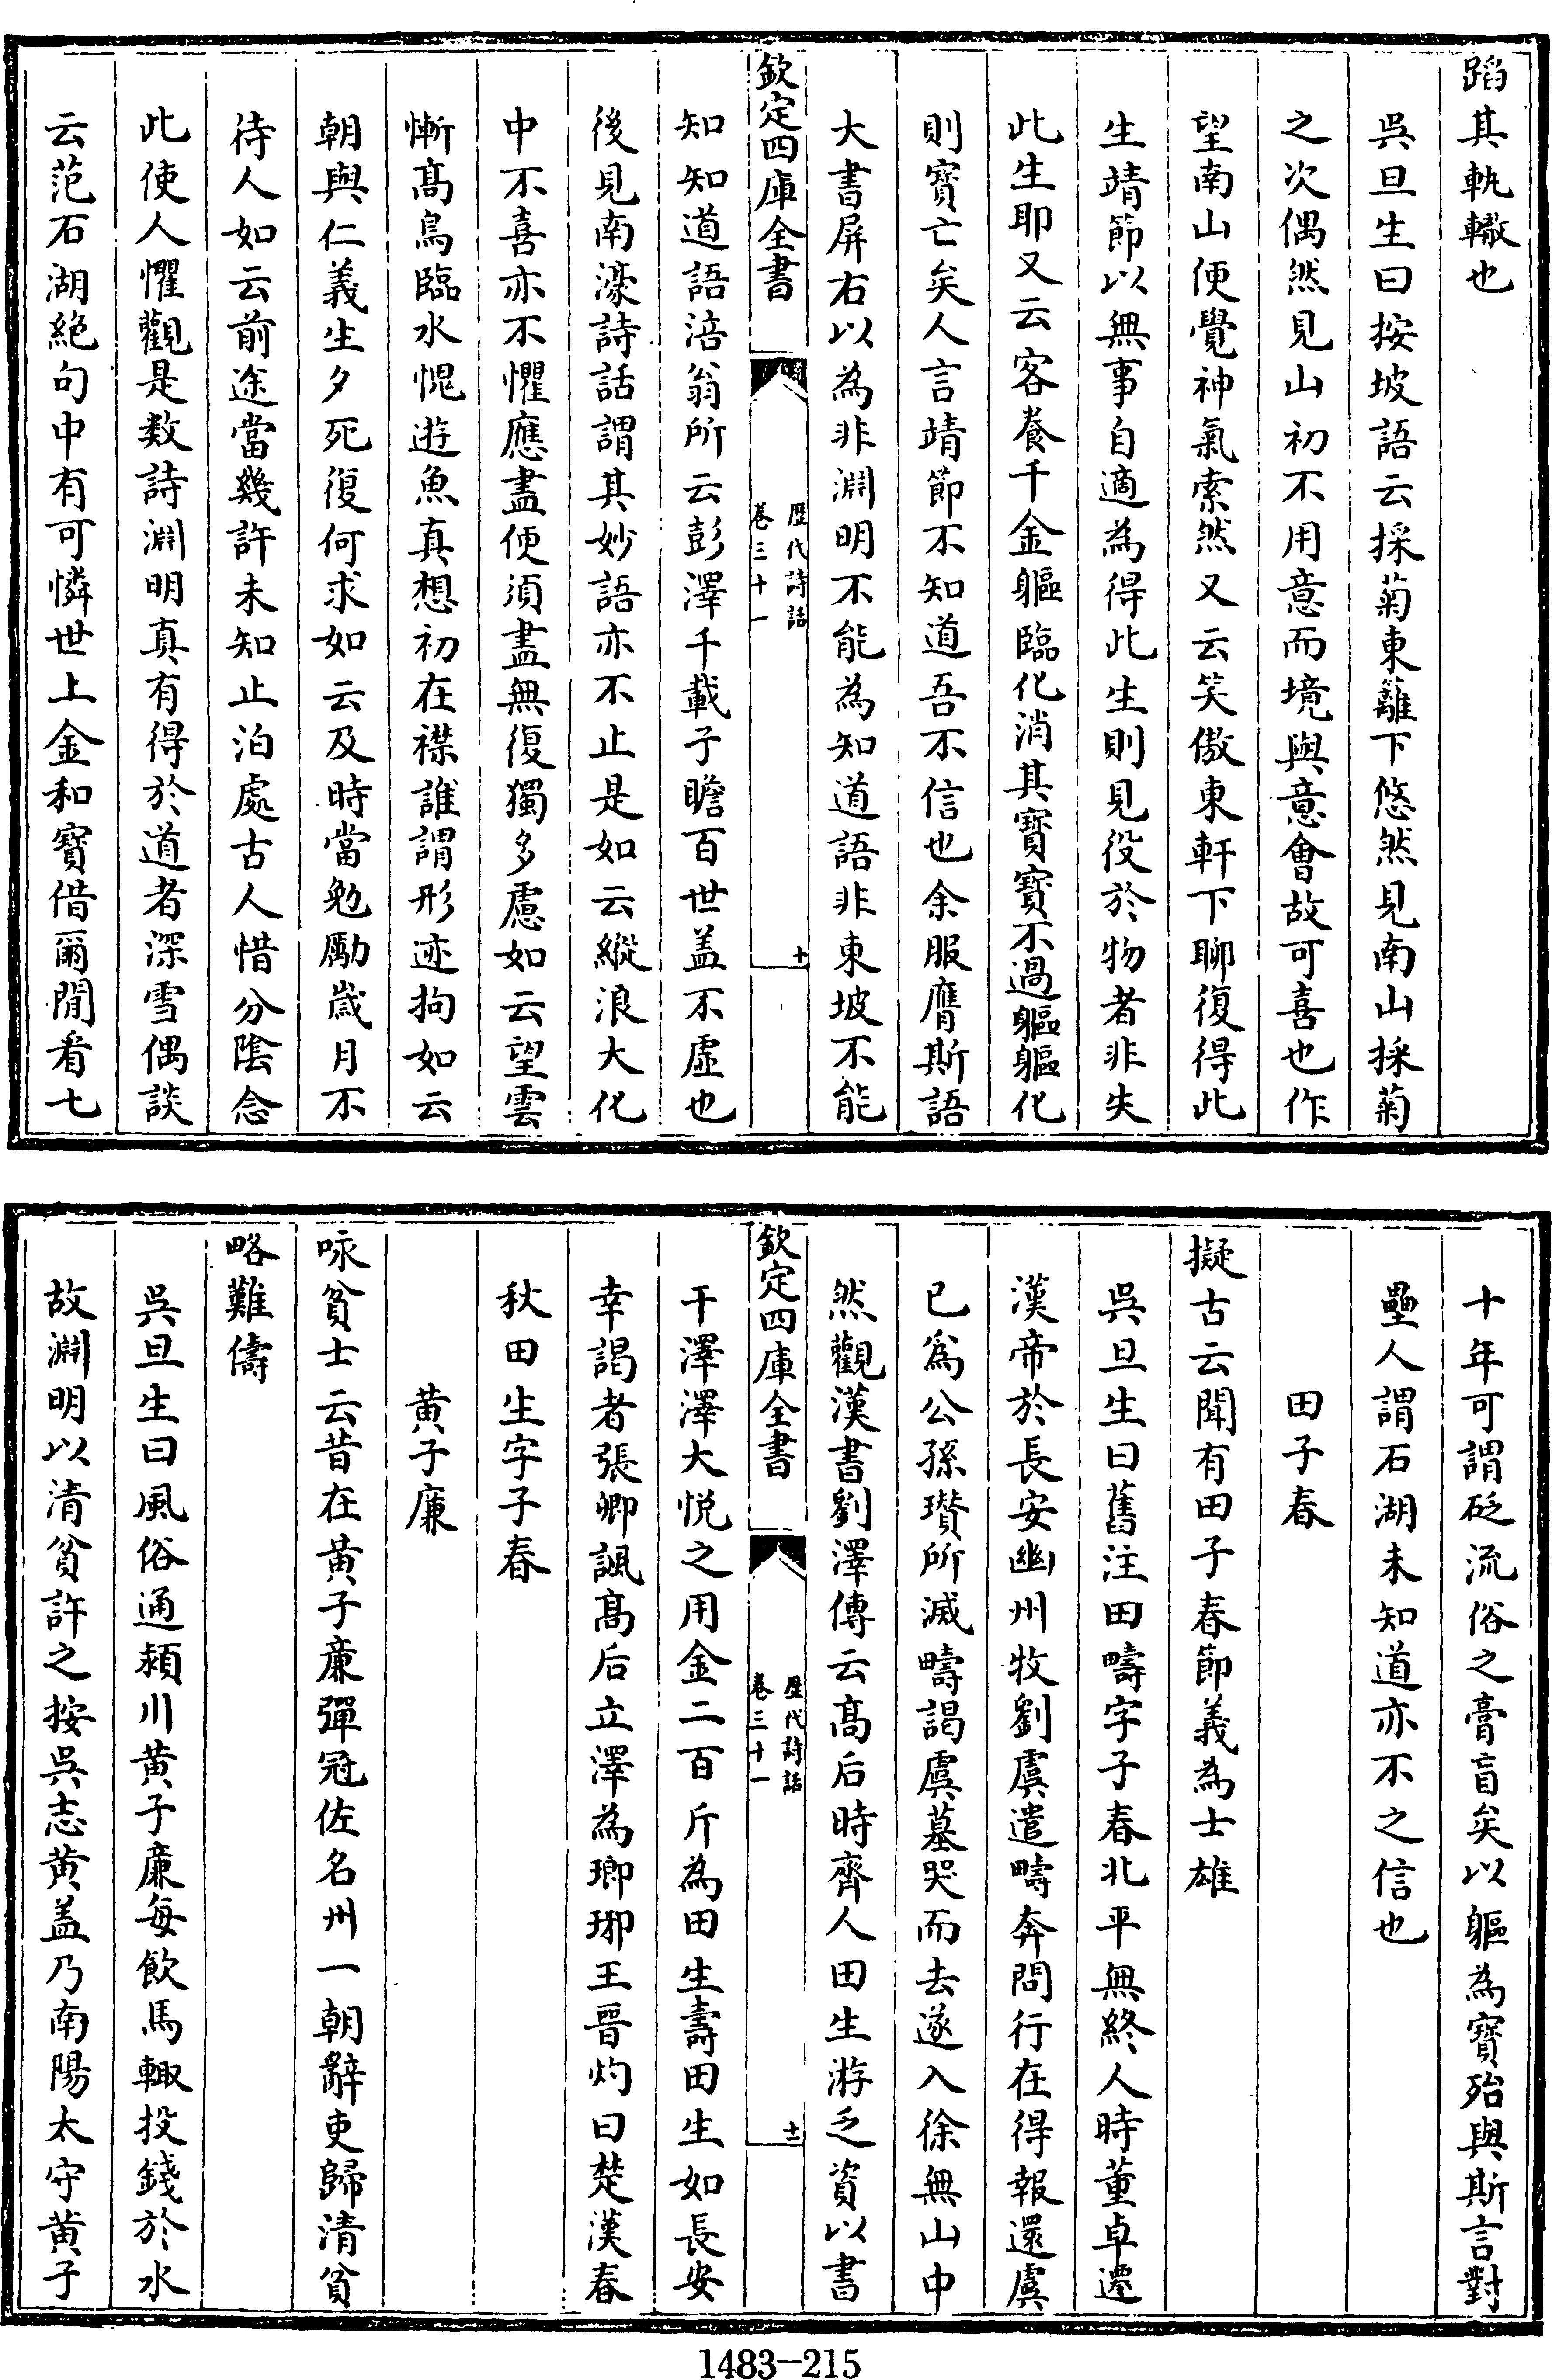 蹈其軌轍也
吳旦生曰按坡語云採菊東籬下悠然見南山採菊
之次偶然見山初不用意而境與意會故可喜也作
望南山便覺神氣索然又云笑傲東軒下聊復得此
生靖節以無事自適為得此生則見役於物者非失
此生耶又云客養千金軀臨化消其寶寶不過軀軀化
則寶亡矣人言靖節不知道吾不信也余服膺斯語
大書屏右以為非淵明不能為知道語非東坡不能
欽定四庫全書
歴代詩話
卷三十一
十
知知道語涪翁所云彭澤千載子瞻百世盖不虛也
後見南濠詩話謂其妙語亦不止是如云縱浪大化
中不喜亦不懼應盡便須盡無復獨多慮如云望雲
慚髙鳥臨水愧遊魚真想初在襟誰謂形迹拘如云
朝與仁義生夕死復何求如云及時當勉勵歲月不
待人如云前途當幾許未知止泊處古人惜分陰念
此使人懼觀是数詩淵明真有得於道者深雪偶談
云范石湖絶句中有可憐世上金和寶借爾閒看七
十年可謂砭流俗之膏肓矣以軀為寶殆與斯言對
壘人謂石湖未知道亦不之信也
田子春
擬古云聞有田子春節義為士雄
吳旦生曰舊注田疇字子春北平無終人時董卓遷
漢帝於長安幽州牧劉虞遣疇奔問行在得報還虞
已爲公孫瓚所滅疇謁虞墓哭而去遂入徐無山中
然觀漢書劉澤傳云髙后時齊人田生游乏資以書
欽定四庫全書
歴代詩話
卷三十一
十一
干澤澤大悅之用金二百斤為田生壽田生如長安
幸謁者張卿諷髙后立澤為瑯琊王晉灼曰楚漢春
秋田生字子春
黄子廉
咏貧士云昔在黄子廉彈冠佐名州一朝辭吏歸清貧
略難儔
吳旦生曰風俗通潁川黄子廉每飲馬輙投錢於水
故淵明以清貧許之按吳志黄盖乃南陽太守黄子
1483-215